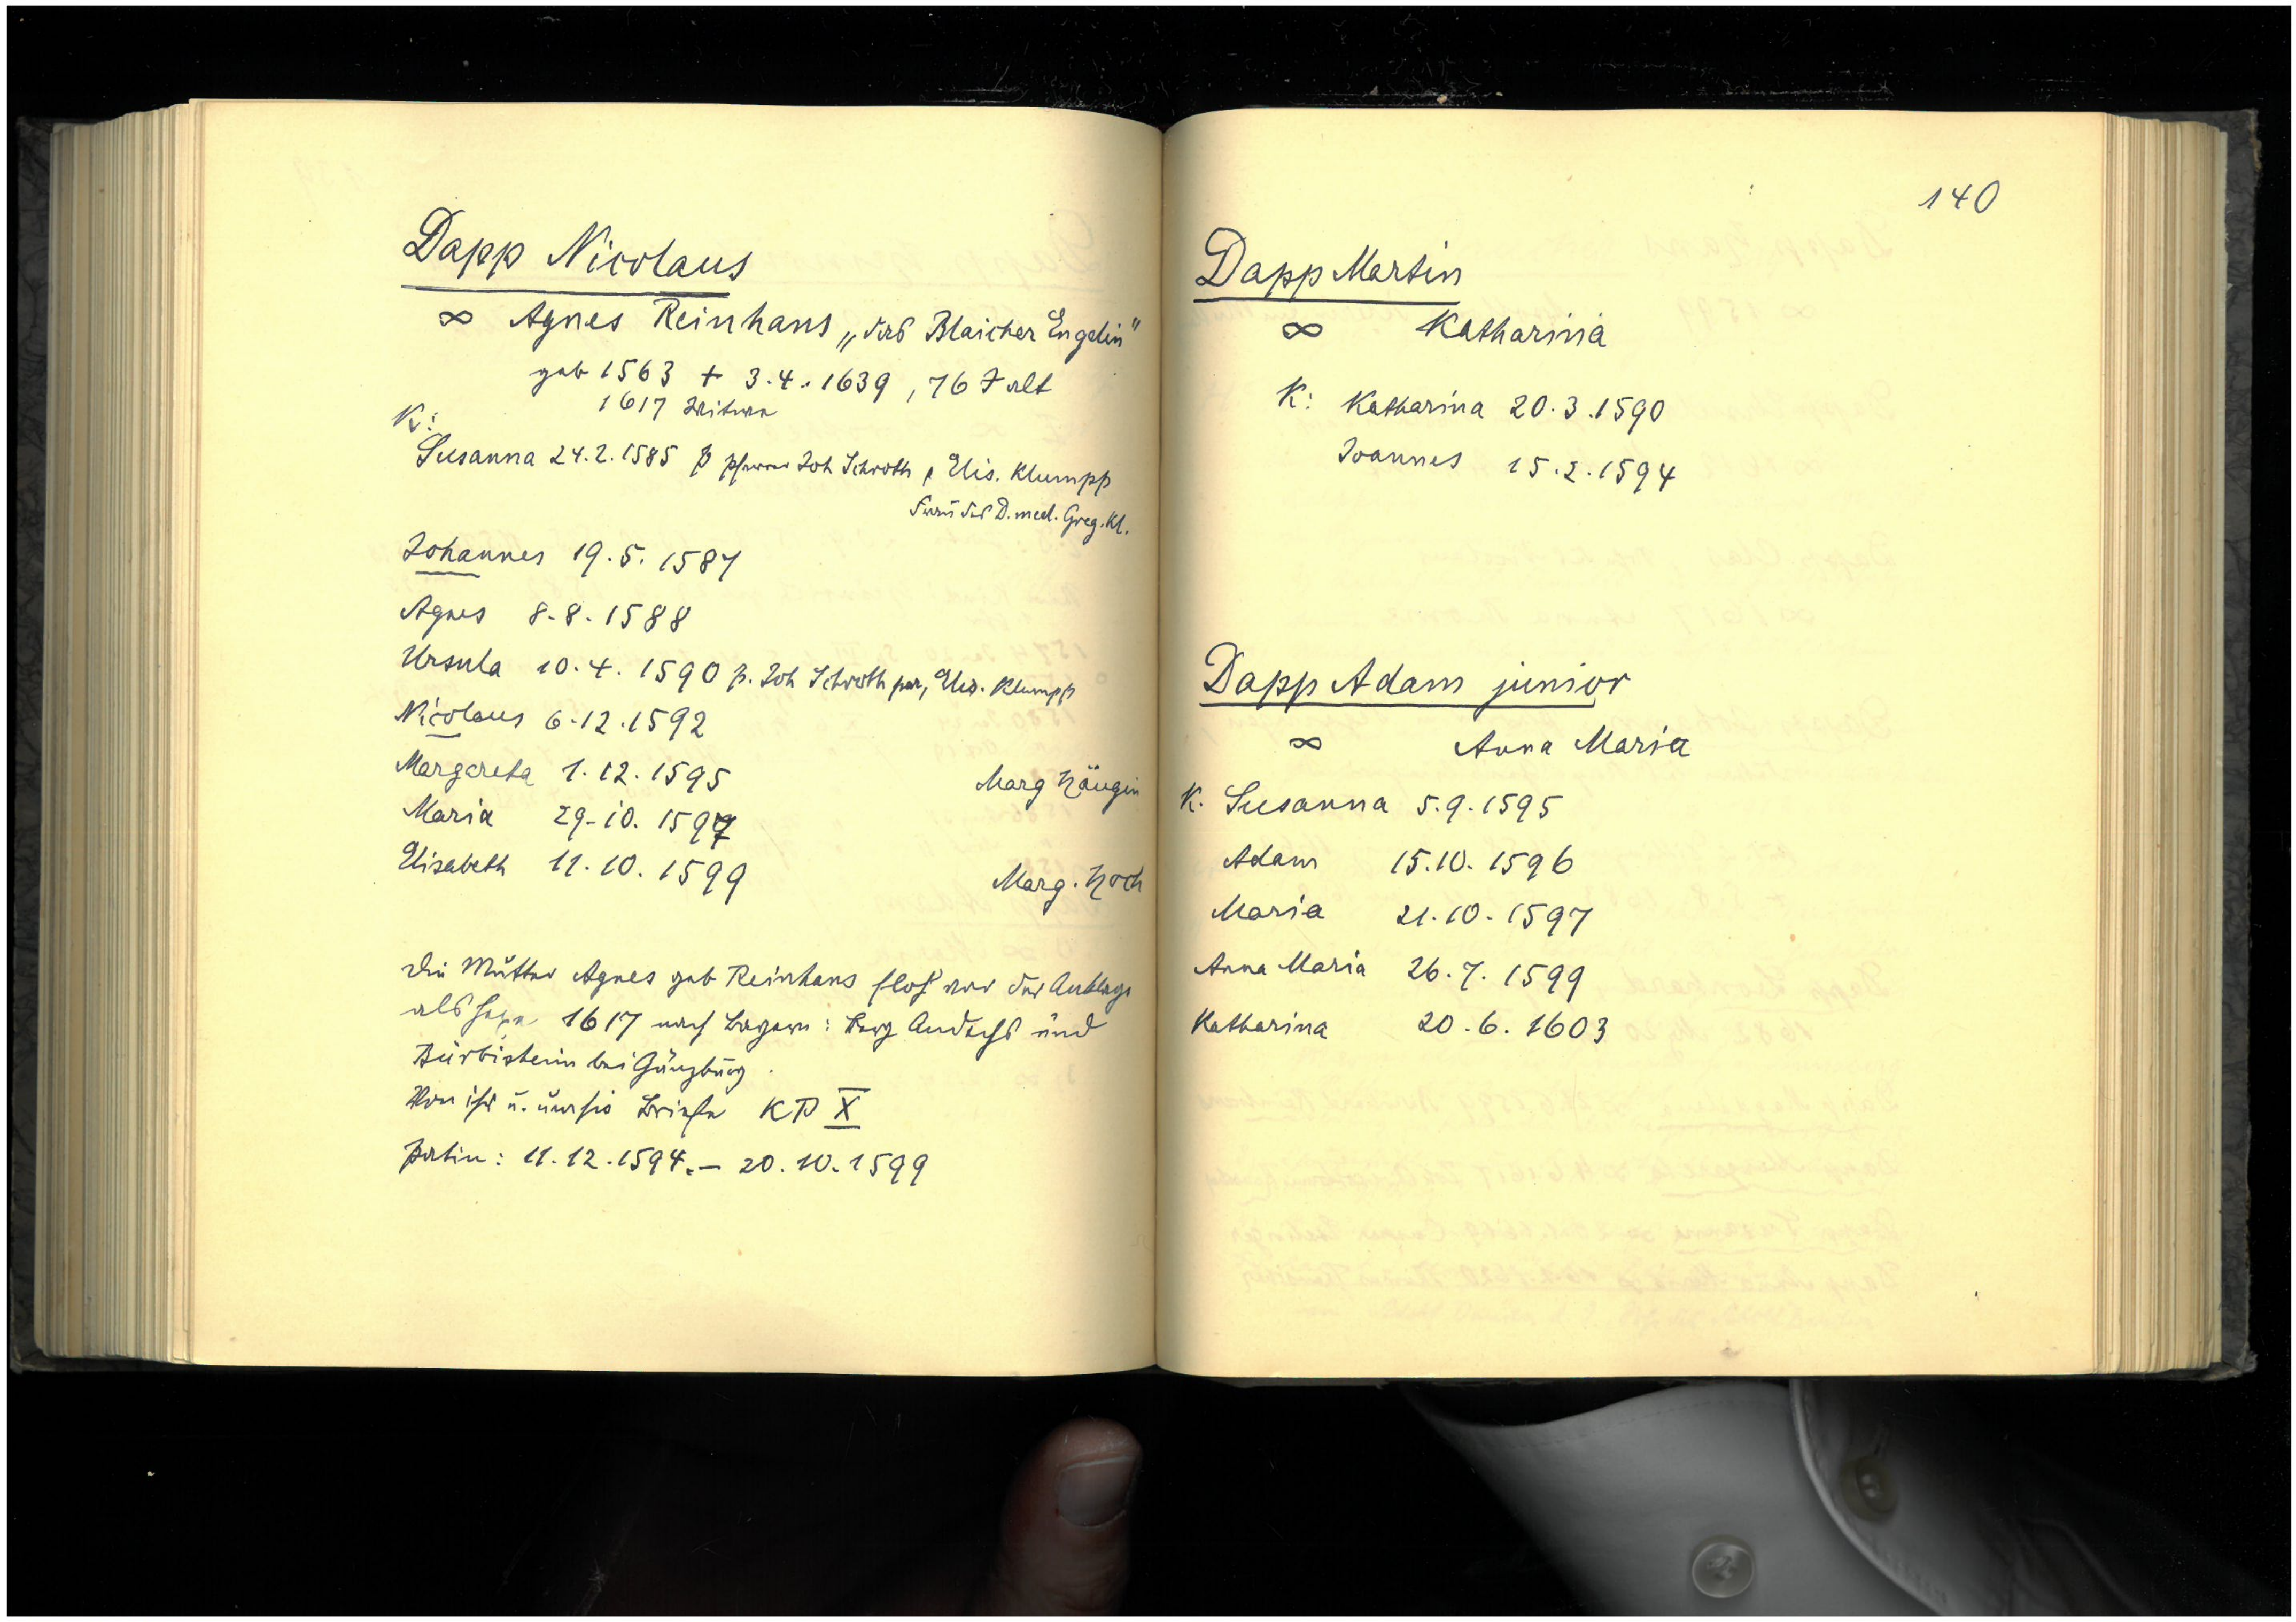 Dapp Nicolaus
∞ Agnes Reinhans „das Blaicher Engelin"
geb 1563 + 3.4.1639, 76 J alt
1617 Witwe
K:
Susanna 24.2.1585 p Pfarrer Joh Schroth, Elis. Klumpp
Frau des D. med. Greg. Kl.
Johannes 19.5.1587
Agnes 8.8.1588
Ursula 10.4.1590 p. Joh Schroth par, Elis. Klumpp
Nicolaus 6.12.1592
Margareta 1.12.1595 Marg Häugin
Maria 29.10.1597
Elisabeth 11.10.1599 Marg. Hoch
Die Mutter Agnes geb Reinhans floh vor der Anklage
als Hexe 1617 nach Bayern: Berg Andechs und
bei Günzburg.
Von ihr u. um sie Briefe KP X
Patin: 11.12.1594.– 20.10.1599
140
Dapp Martin
∞ Katharina
K: Katharina 20.3.1590
Joannes 15.2.1594
Dapp Adam junior
∞ Anna Maria
K. Susanna 5.9.1595
Adam 15.10.1596
Maria 21.10.1597
Anna Maria 26.7.1599
Katharina 20.6.1603